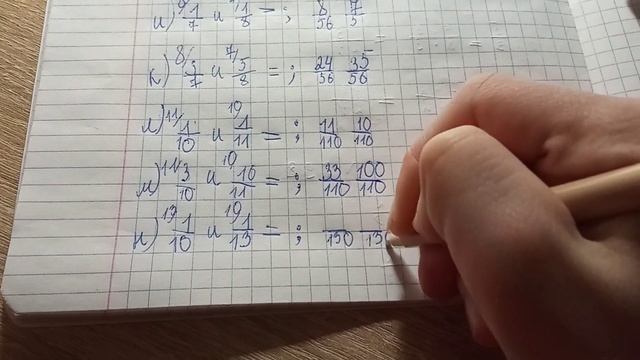 и) 1/7 и 1/8 = ; 8/56 7/5
к) 8/ 3/7 и 7/ 5/8 = ; 24/56 35/56
л) 11/ 1/10 и 10 1/11 = ; 11/110 10/110
м) 11/ 3/10 и 10 10/11 = ; 33/110 100/110
н) 13 1/10 и 10 1/13 = ; 130 13